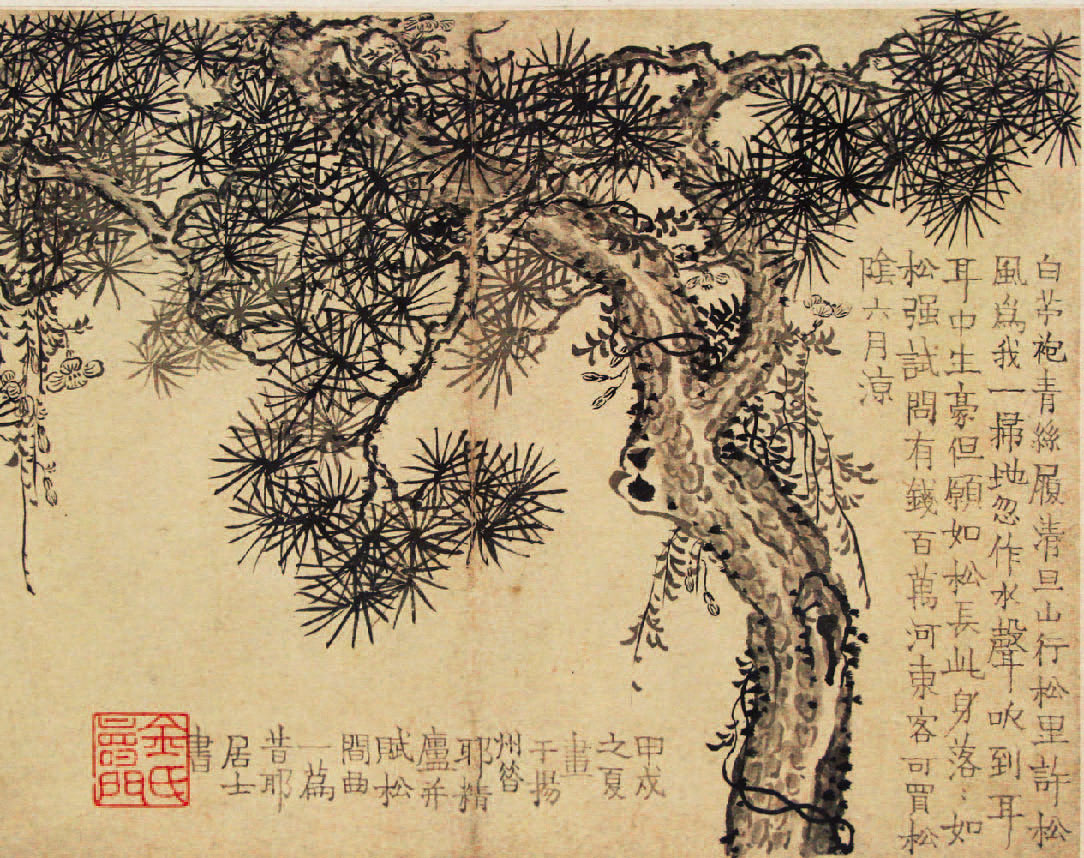 白苧袍青絲履清旦山行松里許松
風為我一掃地忽作水聲吹到耳
耳中生豪但願如松長此身落〻如
松强試問有錢百萬河東客可買松
陰六月涼
甲戌
之夏
畫
于揚
州答
耶精
廬并
賦松
間曲
一為
昔耶
居士
書
金氏
壽門